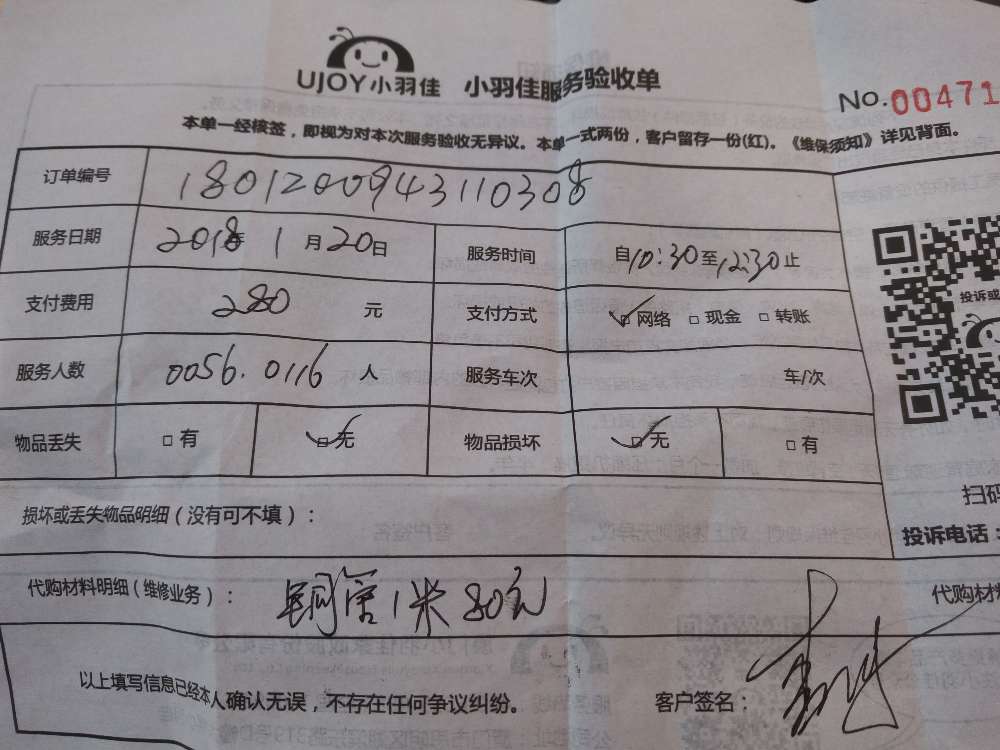 UJOY小羽佳 小羽佳服务验收单
No.00471
本单一经核签，即视为对本次服务验收无异议。本单一式两份，客户留存一份(红)。《维保须知》详见背面。
订单编号 1801200943110308
服务日期 2018年 1月20日 服务时间 自10:30至12:30止
支付费用 280 元 支付方式 □网络 □现金 □转账
服务人数 0056.0116 人 服务车次 车/次
物品丢失 □有 □无 物品损坏 □无 □有
损坏或丢失物品明细（没有可不填）：
代购材料明细（维修业务）： 铜管1米80元
以上填写信息已经本人确认无误，不存在任何争议纠纷。 客户签名：
投诉或
扫码
投诉电话：
代购材料